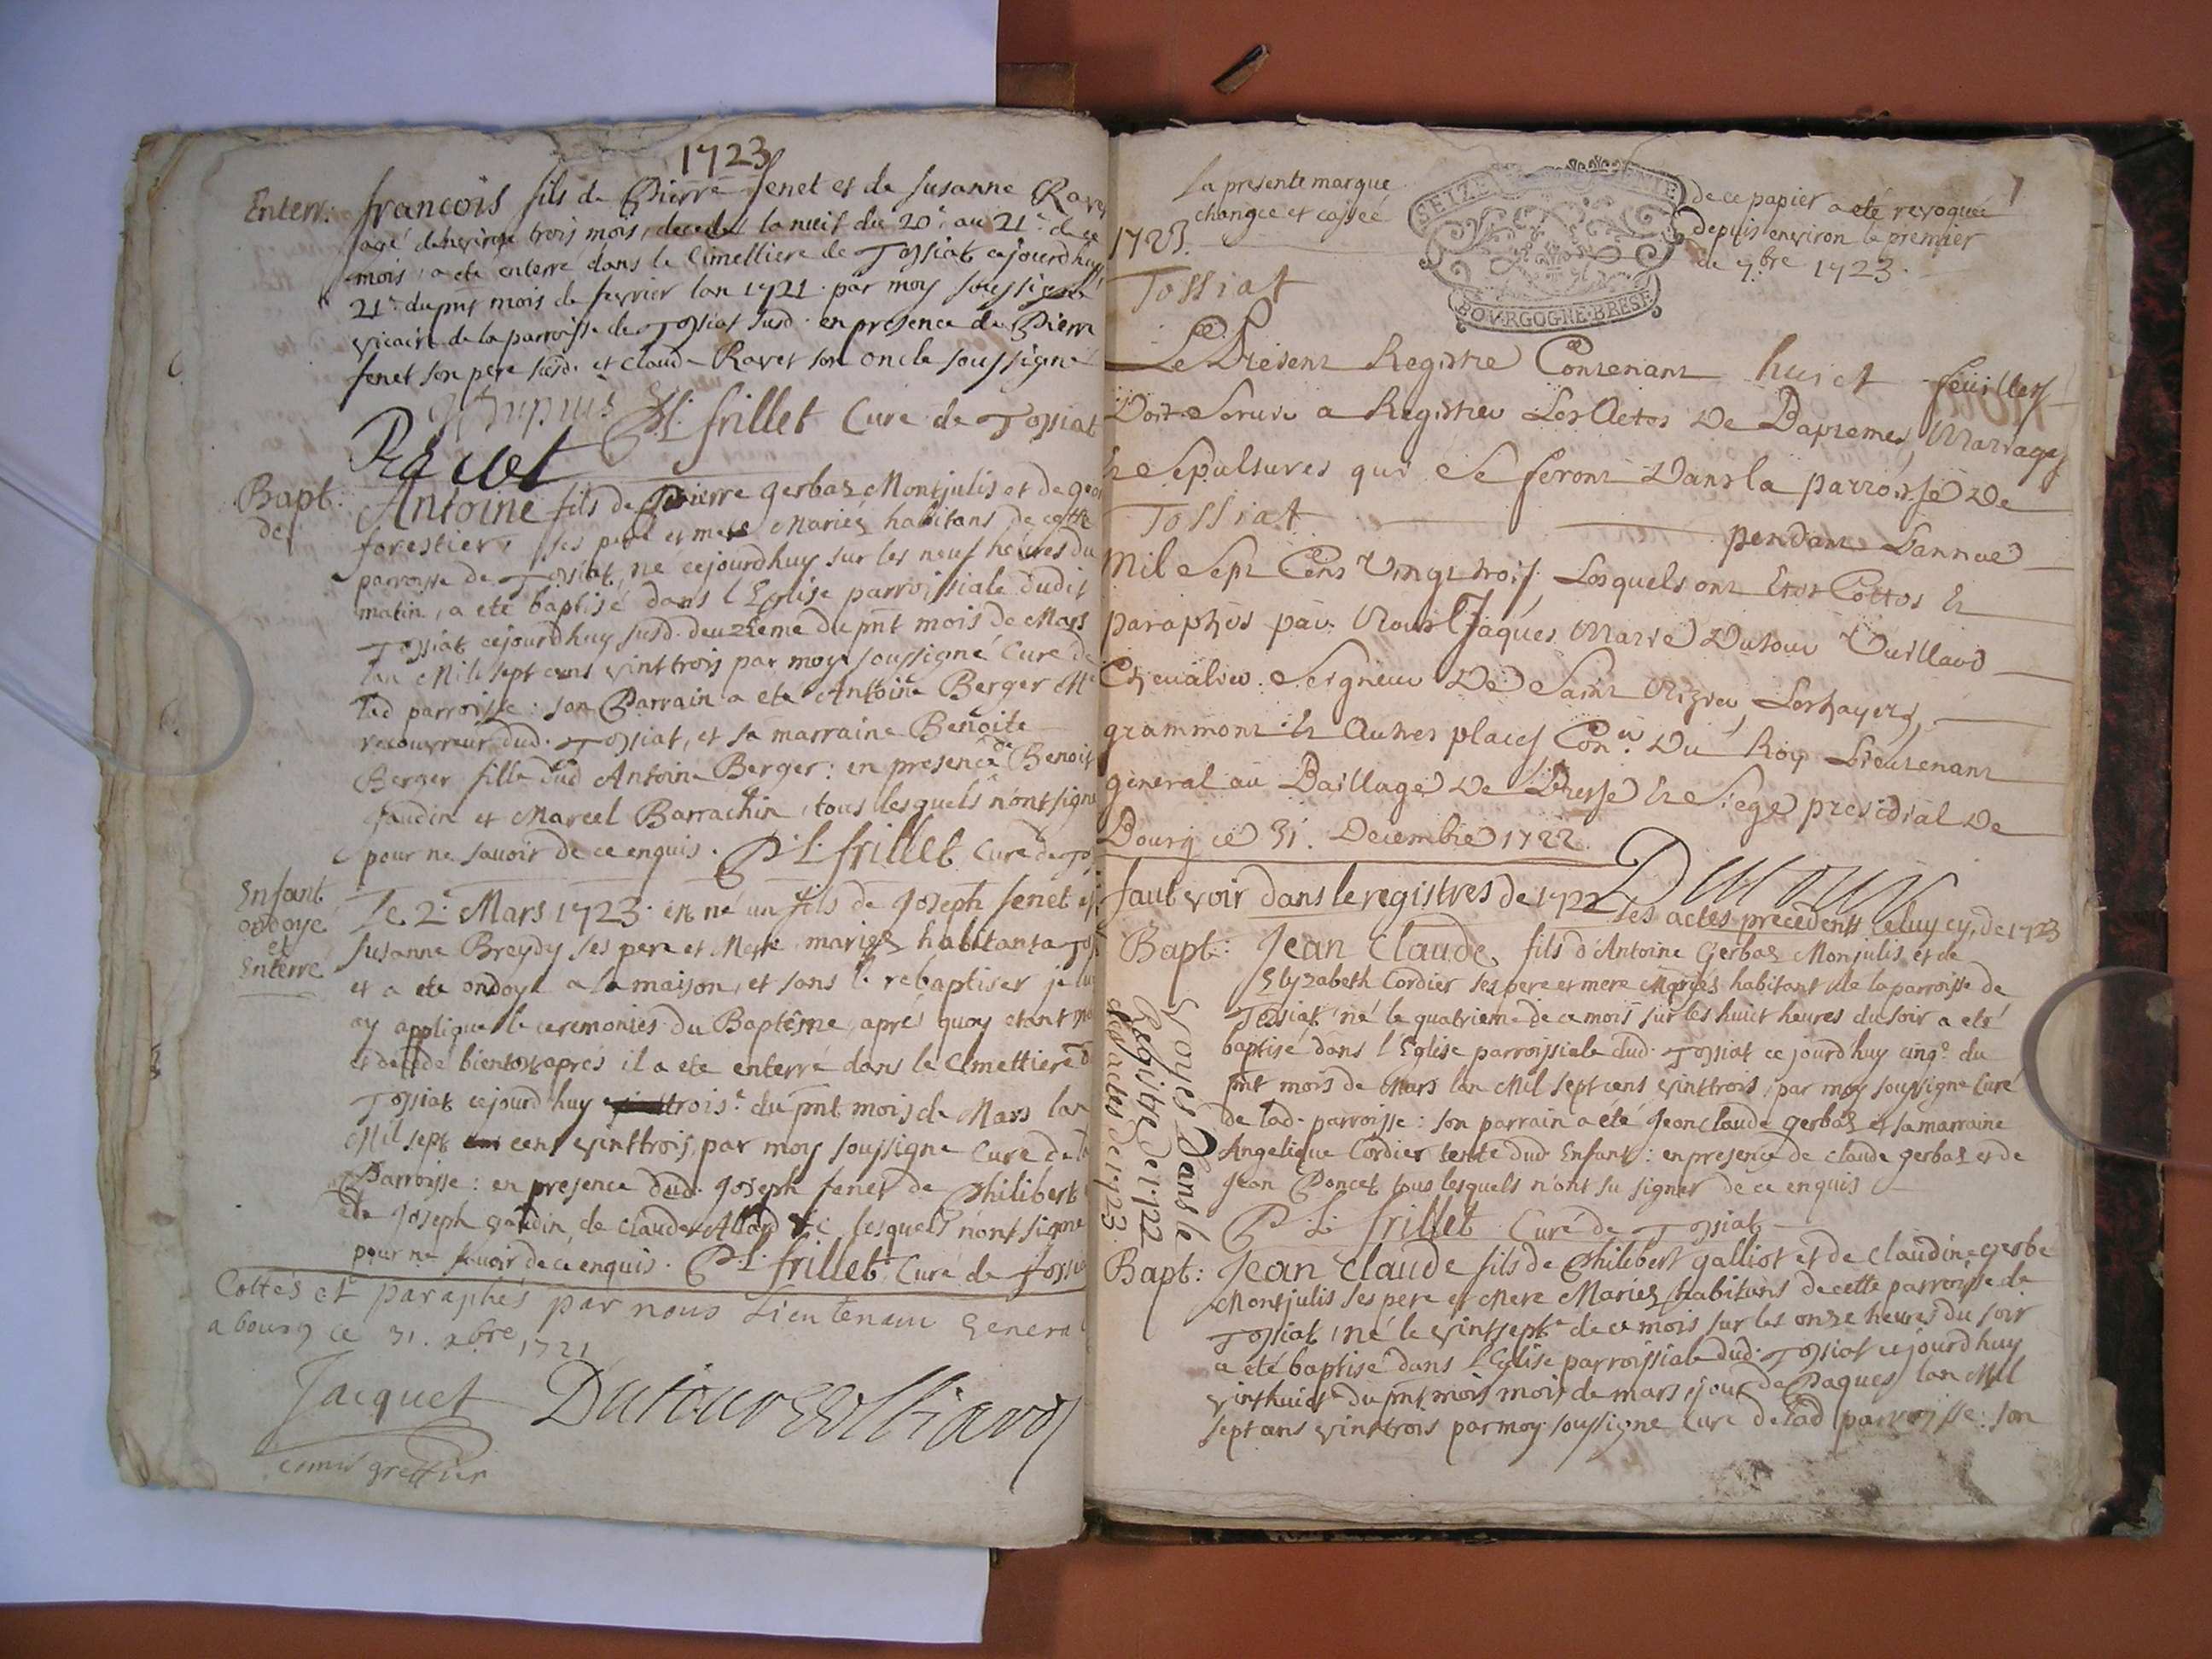 1723
Enterr: francois fils de Pierre fenet et de Susanne Ravet
agé denviron trois mois, decedé la nuit du 20e au 21e de ce
mois, a eté enterré dans le Cimettiere de Tossiat cejourdhuy
21e du pnt mois de fevrier lan 1721 par moy soussigné
vicaire de la parroisse de Tossiat susd. en presence de Pierre
fenet son pere susd. et Claude Ravet son oncle soussigné
Dupuis
P L frillet Curé de Tossiat
Ravet
Bapt: Antoine fils de Pierre gerbaz Montjulis et de
de forestier, ses pere et mere Mariéz habitans de cette
parroisse de Tossiat, né cejourdhuy sur les neuf heures du
matin, a eté baptisé dans l'Eglise parroissiale dudit
Tossiat cejourdhuy susd. deuzieme du pnt mois de Mars
lan Mil sept cens vint trois par moy soussigné Curé de
lad parroisse : son Parrain a eté Antoine Berger Me
recouvreur dud. Tossiat, et sa marraine Benoite
Berger fille dud Antoine Berger : en presence de Benoit
Jaudin et Marcel Barrachin, tous lesquels n'ont signé
pour ne savoir de ce enquis. P L frillet Curé de
Enfant ondoye et Enterré
Le 2e Mars 1723. est né un fils de Joseph fenet et
Susanne Breydy ses pere et Mere mariez habitants a
et a eté ondoyé a la maison, et sans le rebaptiser je luy
ay appliqué le ceremonies du Baptême, aprés quoy etant
et decedé bientost aprés il a eté enterré dans le Cimettiere
Tossiat cejourdhuy troise du pnt mois de Mars lan
Mil sept cens vint trois, par moy soussigné Curé de
Parroisse : en presence dud. Joseph fenet de Philibert
de Joseph vaudin, de Claude Allard &c lesquels n'ont signé
pour ne savoir de ce enquis. P L frillet Curé de Tossiat
Cottés et paraphés par nous Lieutenant General
a bourg ce 31. xbre 1721
Jacquet
Dutour Vuilliard
comis greffier
1
La presente marque de ce papier a eté revoquée
changee et cassée Depuis environ le premier
de 7.bre 1723.
SEIZE
BOVRGOGNE·BRESE
1723.
Tossiat
Le Present Registre Contenant huict feuillets
Doit Servir a Registrer Les Actes De Baptemes, Mariages
Et Sepulsures qui Se feront Dans la parroisse De
Tossiat pendant L'année
Mil Sept Cens Vingt trois, Lesquels ont Etez Cottes Et
paraphés par Nous Jaques Marie Dutour Vuillard
Chevalier Seigneur De Saint Nizier, Les hayes,
grammont Et Autres places Coner. Du Roy Lieutenant
general au Baillage De Bresse Et Siege presidial De
Bourg ce 31. Decembre 1722.
Dutour
faut voir dans le registres de 1722 les actes precedents celuy cy, de 1723
Bapt: Jean Claude, fils d'Antoine Gerbaz Monjulis et de
Elyzabeth Cordier ses pere et mere Mariés habitant de la parroisse de
Tossiat né le quatrieme de ce mois sur les huict heures du soir a eté
baptisé dans l'Eglise parroissiale dud. Tossiat ce jourdhuy cinqe du
pnt mois de Mars lan Mil sept cens vint trois, par moy soussigné Curé
de lad. parroisse : son parrain a été Jean claude gerbaz et sa marraine
Angelique Cordier tente dud. Enfant : en presence de claude gerbaz et de
Jean Poncet tous lesquels n'ont su signer de ce enquis
P. L. frillet Curé de Tossiat
Voyes Dans le
Regitre de 1722
des actes de 1723
Bapt: Jean Claude fils de Philibert galliot et de Claudine gerbé
Montjulis ses pere et Mere Mariez habitans de cette parroisse de
Tossiat, né le vintsepte de ce mois sur les onze heures du soir
a eté baptisé dans l'Eglise parroissiale dud. Tossiat cejourdhuy
vinthuict du pnt mois mois de mars, jour de Paques lan Mil
sept cens vint trois par moy soussigne Curé de lad parroisse : son